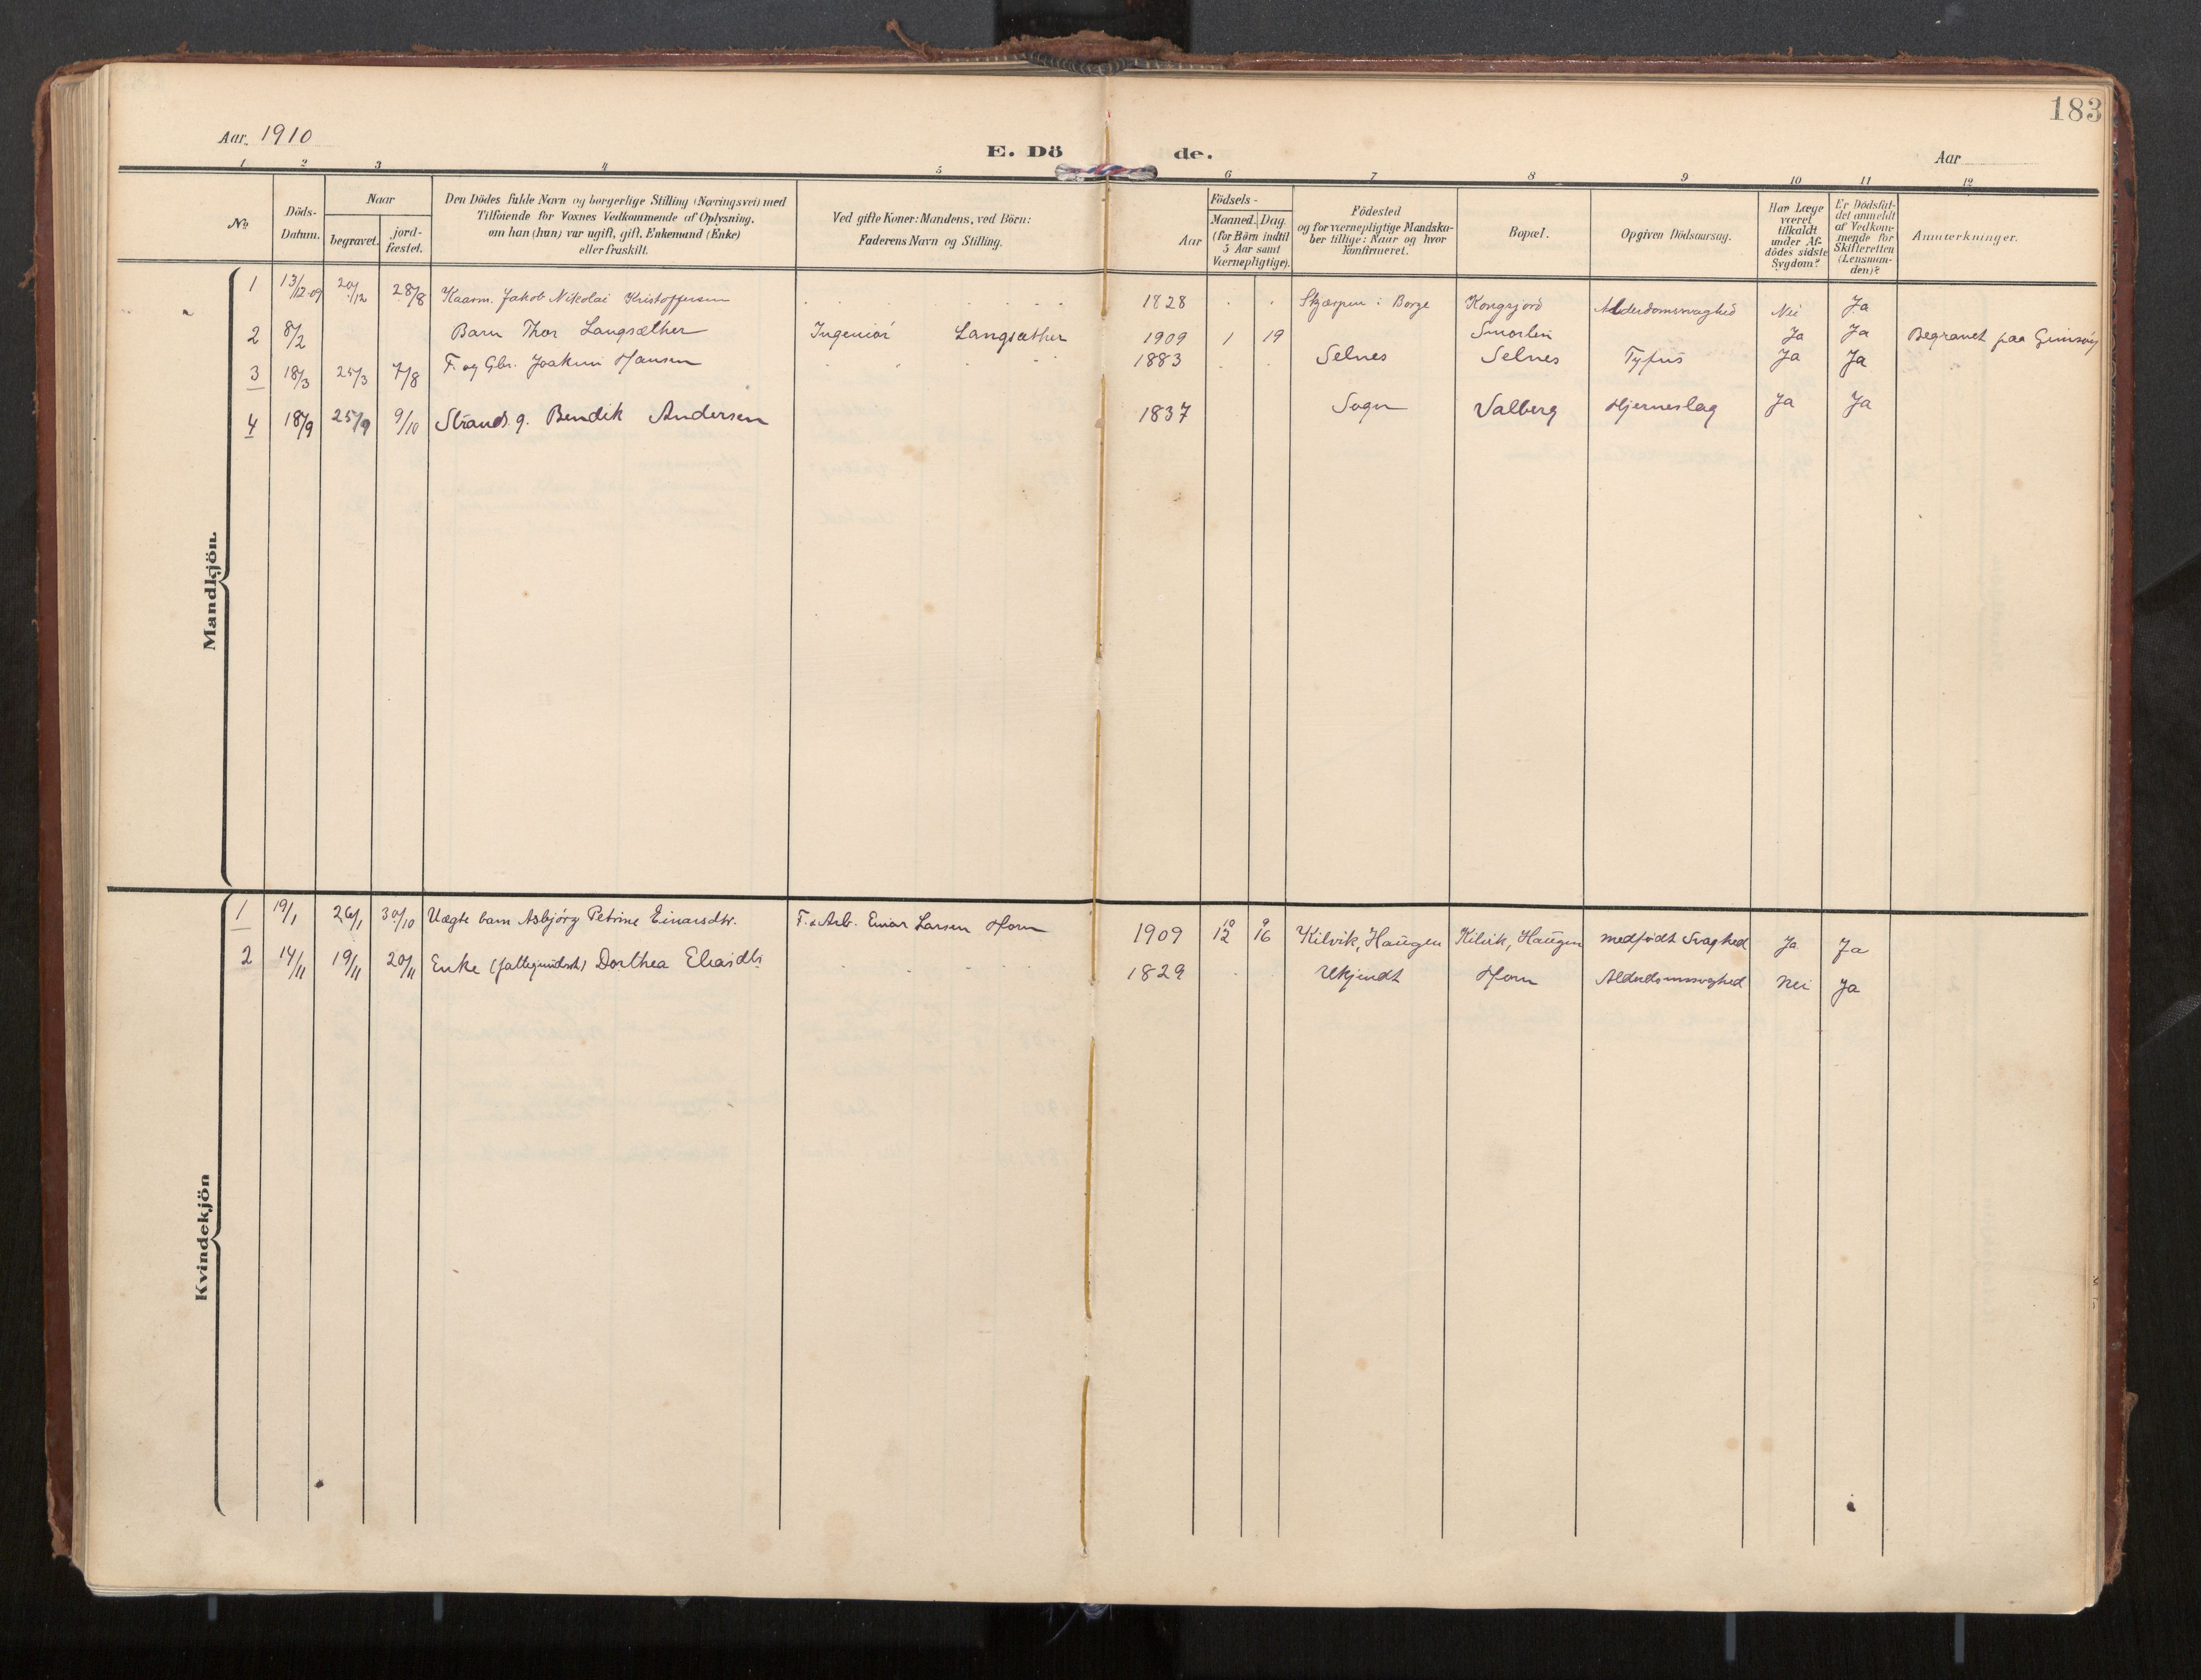 183
Aar 1910
E. Dö de.
Aar
1 2 3 4 5 6 7 8 9 10 11 12
No
Döds-
Datum.
Naar
begravet.
jord-
fæstet.
Den Dödes fulde Navn og borgerlige Stilling (Næringsvei) med
Tilföiende for Voxnes Vedkommende af Oplysning,
om han (hun) var ugift, gift, Enkemand (Enke)
eller fraskilt.
Ved gifte Koner: Mandens, ved Börn:
Faderens Navn og Stilling.
Aar
Födsels-
Maaned. Dag.
(for Börn indtil
5 Aar samt
Værnepligtige).
Födested
og for værnepligtige Mandska-
ber tillige: Naar og hvor
konfirmeret.
Bopæl.
Opgiven Dödsaarsag.
Har Læge
været
tilkaldt
under Af-
dödes sidste
Sygdom?
Er Dödsfal-
det anmeldt
af Vedkom-
mende for
Skifteretten
(Lensman-
den)?
Anmærkninger.
Mandkjön.
1 13/12 09 20/12 28/8 Kaarm. Jakob Nikolai Kristoffersen 1828 Skjærpen i Borge Kongsjord Alderdomssvaghed Nei Ja
2 8/2 Barn Thor Langsæther Ingeniör Langsæther 1909 1 19 Smorten Ja Ja Begravet paa Gimsöy
3 18/3 25/3 7/8 F. og Gbr. Joakim Hansen 1883 Selnes Selnes Tyfus Ja Ja
4 18/9 25/9 9/10 Strands. g. Bendik Andersen 1837 Sogn Valberg Hjerneslag Ja Ja
Kvindekjön
1 19/1 26/1 30/10 Uægte barn Asbjörg Petrine Einarsdtr. F. & Arb. Einar Larsen Horn 1909 10 12 9 16 Kilvik, Haugen Kilvik, Haugen medfödt Svaghed Ja Ja
2 14/11 19/11 20/11 Enke Dorthea Eliasdtr 1829 Ukjendt Horn Alderdomssvaghed Nei Ja